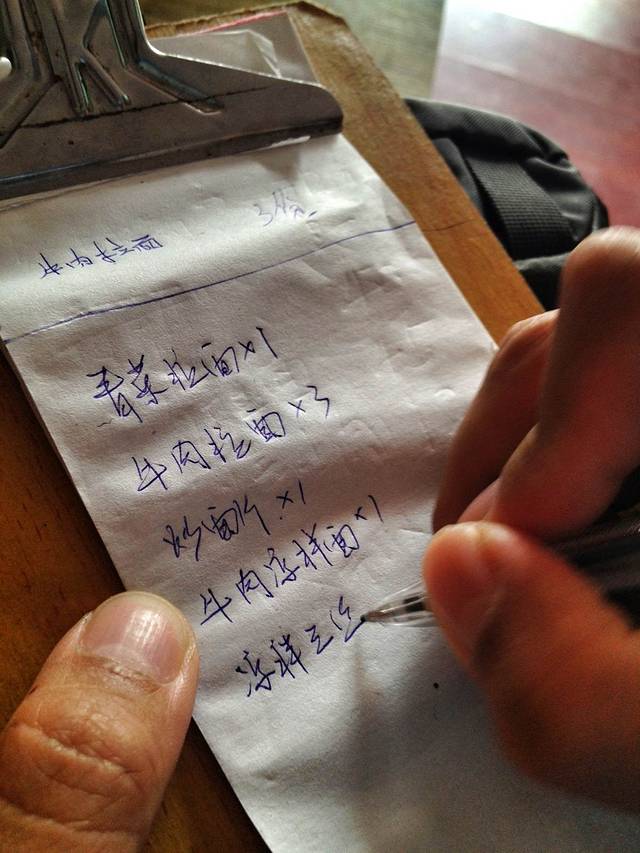 牛肉拉面 3份
青菜拉面×1
牛肉拉面×3
炒面片×1
牛肉浮样面×1
浮样三丝